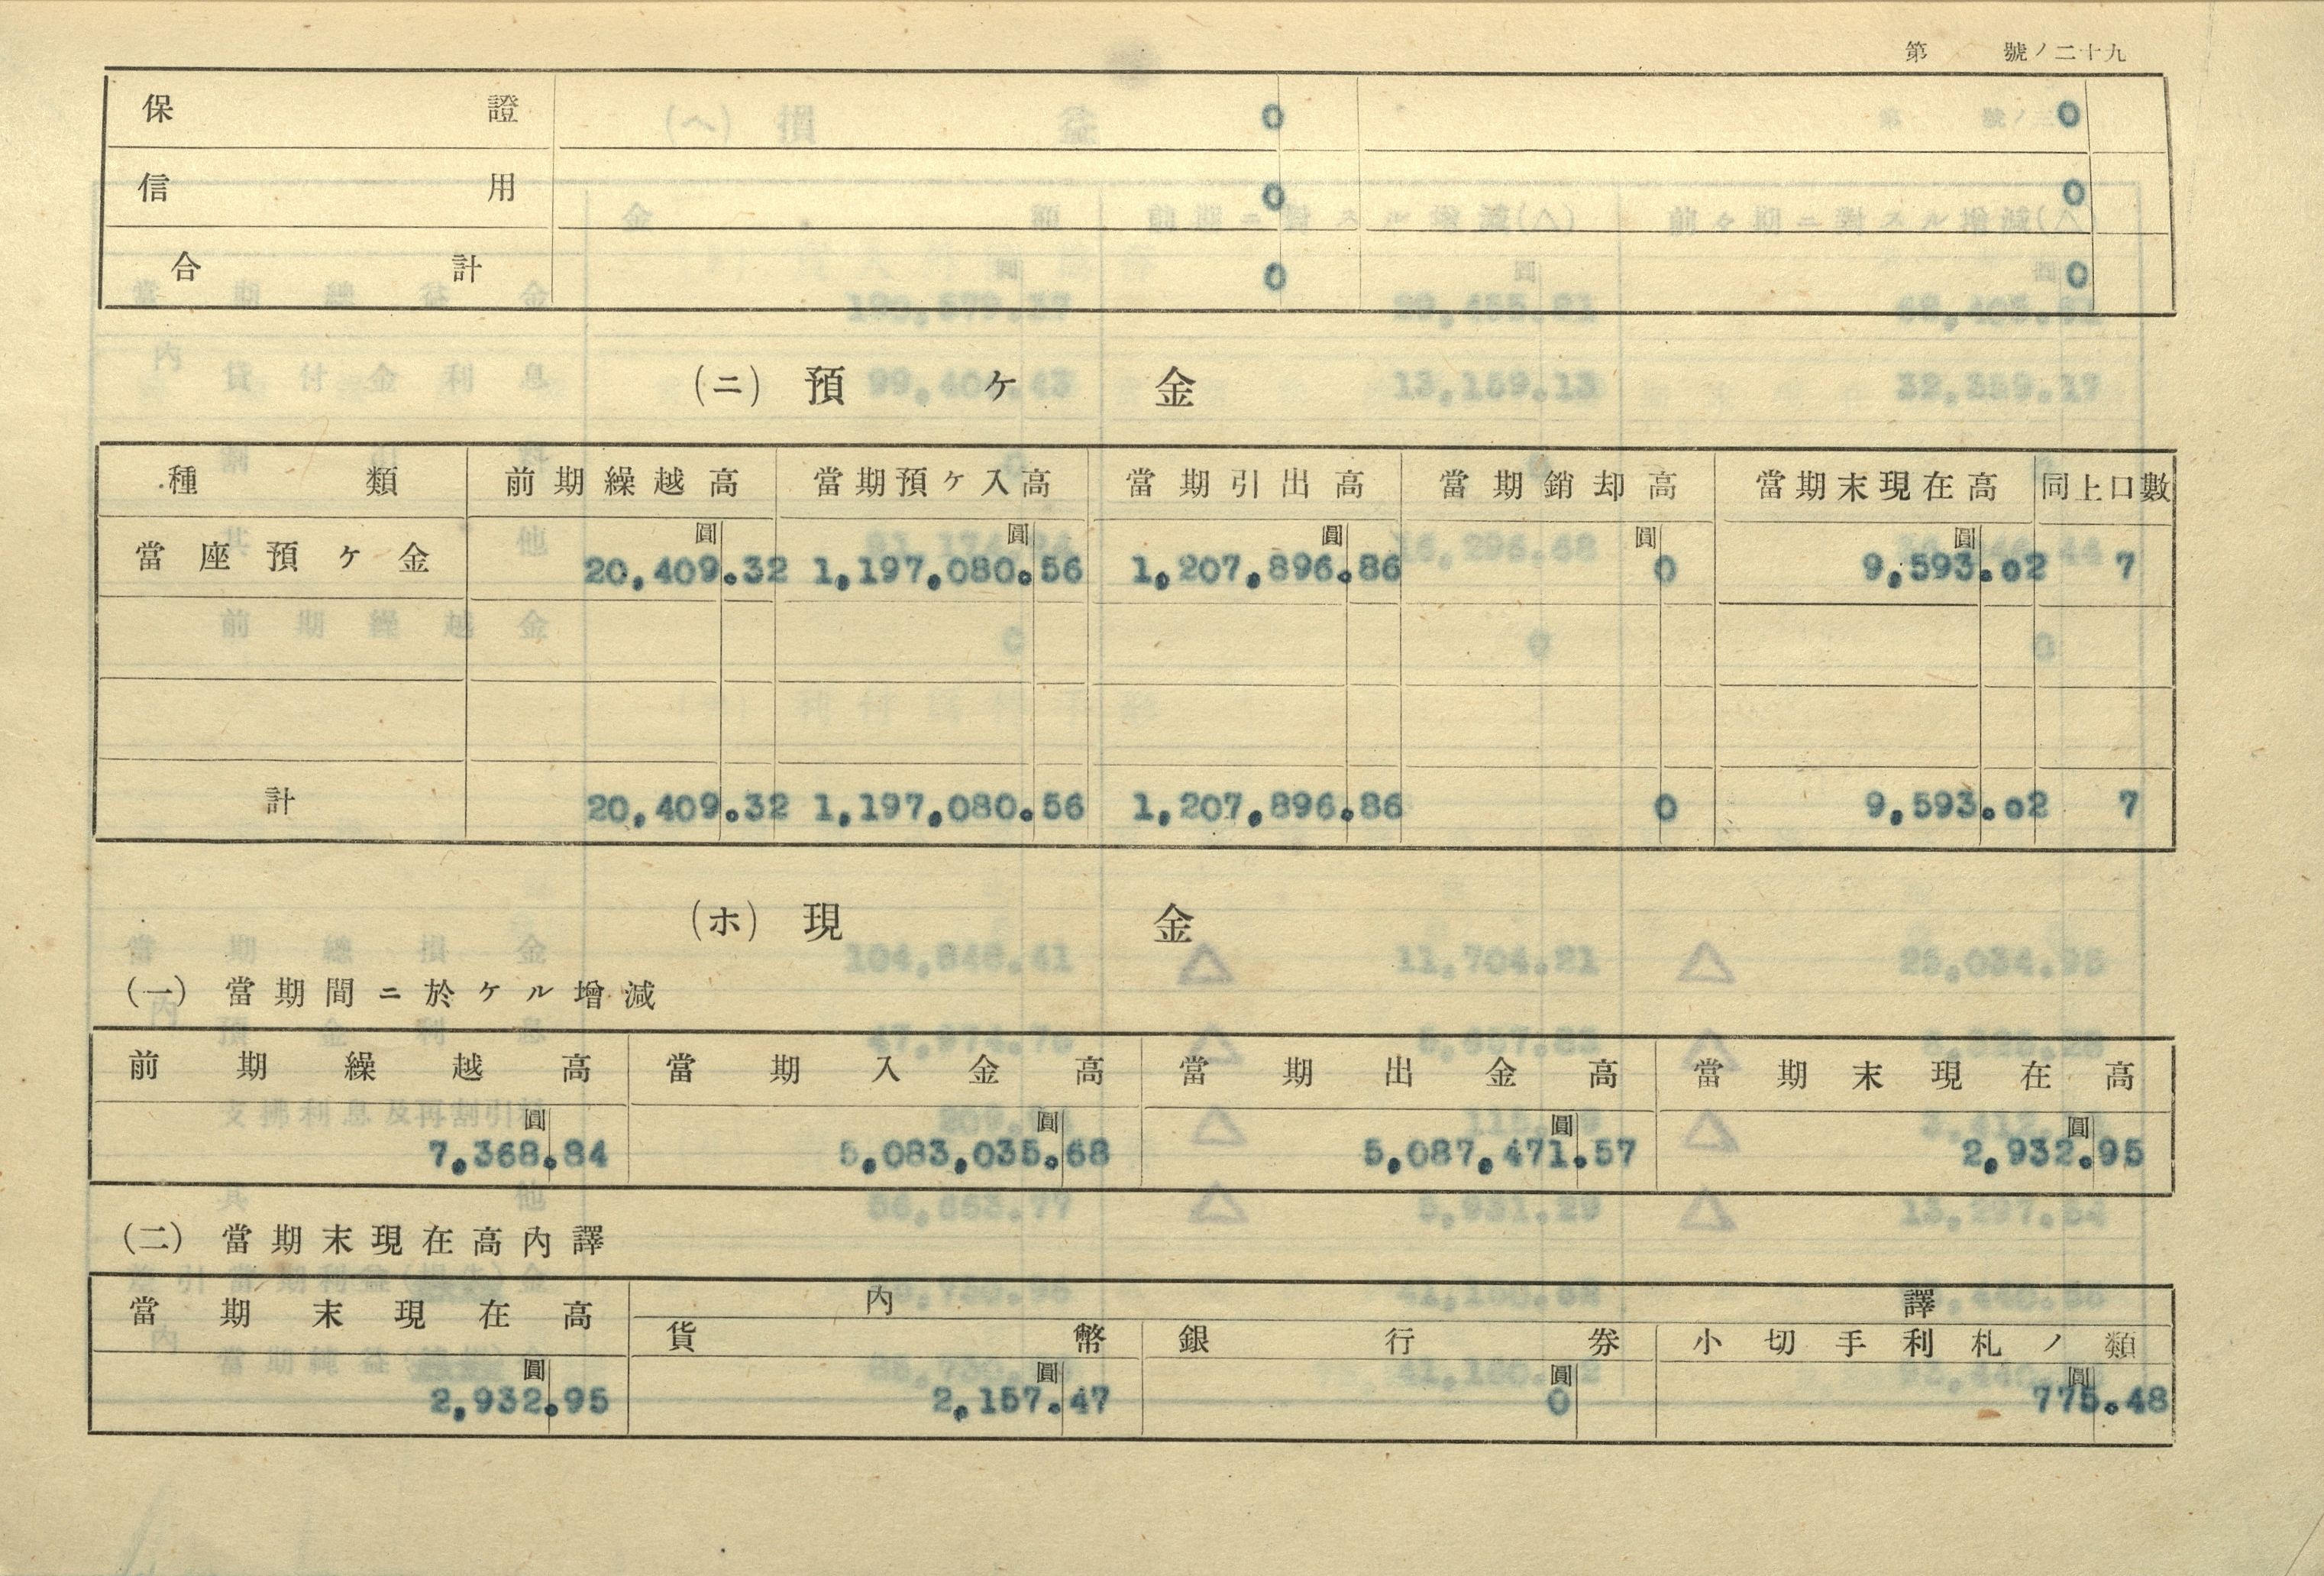 第 號ノ二十九
保證 0 0
信用 0 0
合計 0 0
(ニ) 預ケ金
種類 前期繰越高 當期預ケ入高 當期引出高 當期銷却高 當期末現在高 同上口數
圓 圓 圓 圓 圓
當座預ケ金 20,409.32 1,197,080.56 1,207,896.86 0 9,593.02 7
計 20,409.32 1,197,080.56 1,207,896.86 0 9,593.02 7
(ホ) 現金
(一) 當期間ニ於ケル增減
前期繰越高 當期入金高 當期出金高 當期末現在高
圓 圓 圓 圓
7,368.84 5,083,035.68 5,087,471.57 2,932.95
(二) 當期末現在高內譯
當期末現在高 內譯
貨幣 銀行券 小切手利札ノ類
圓 圓 圓 圓
2,932.95 2,157.47 0 775.48